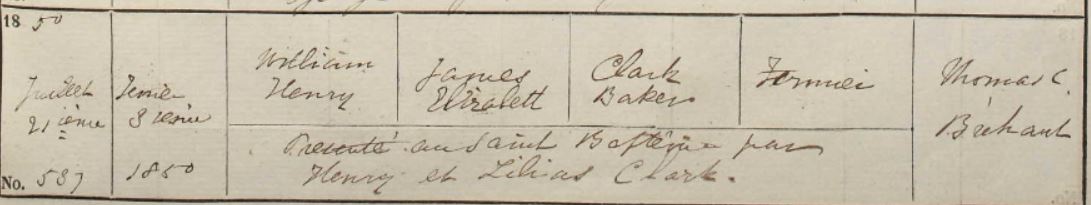 18 50
Juillet
21 ième
No. 587
3 ième
1850
William
Henry
James
Elizabeth
Clark
Baker
Fermier
Thomas C.
Bréhaut
Presenté au Saint Baptême par
Henry et Lilias Clark.